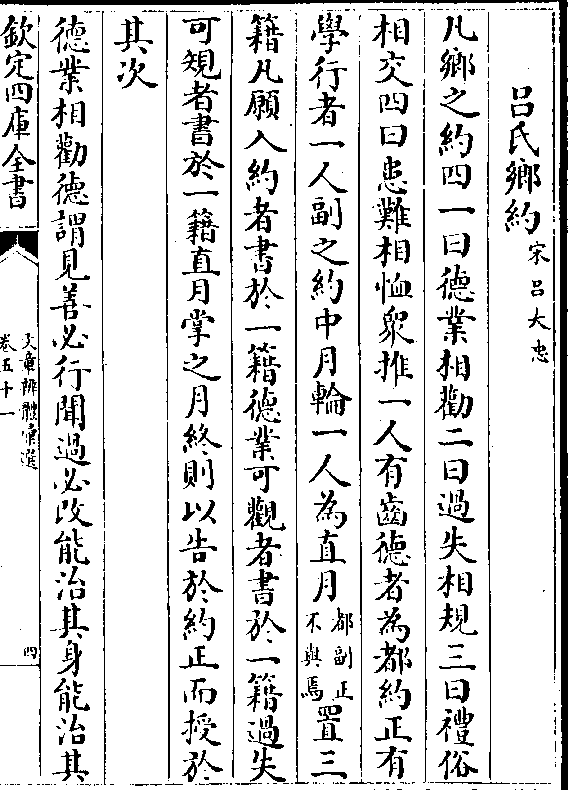 呂氏鄉約 宋呂大忠
凡鄉之約四一曰德業相勸二曰過失相規三曰禮俗
相交四曰患難相恤衆推一人有齒德者為都約正有
學行者一人副之約中月輪一人為直月都副正不與焉置三
籍凡願入約者書於一籍德業可觀者書於一籍過失
可規者書於一籍直月掌之月終則以告於約正而授於
其次
德業相勸德謂見善必行聞過必改能治其身能治其
欽定四庫全書
文章辨體彙選
卷五十一
四